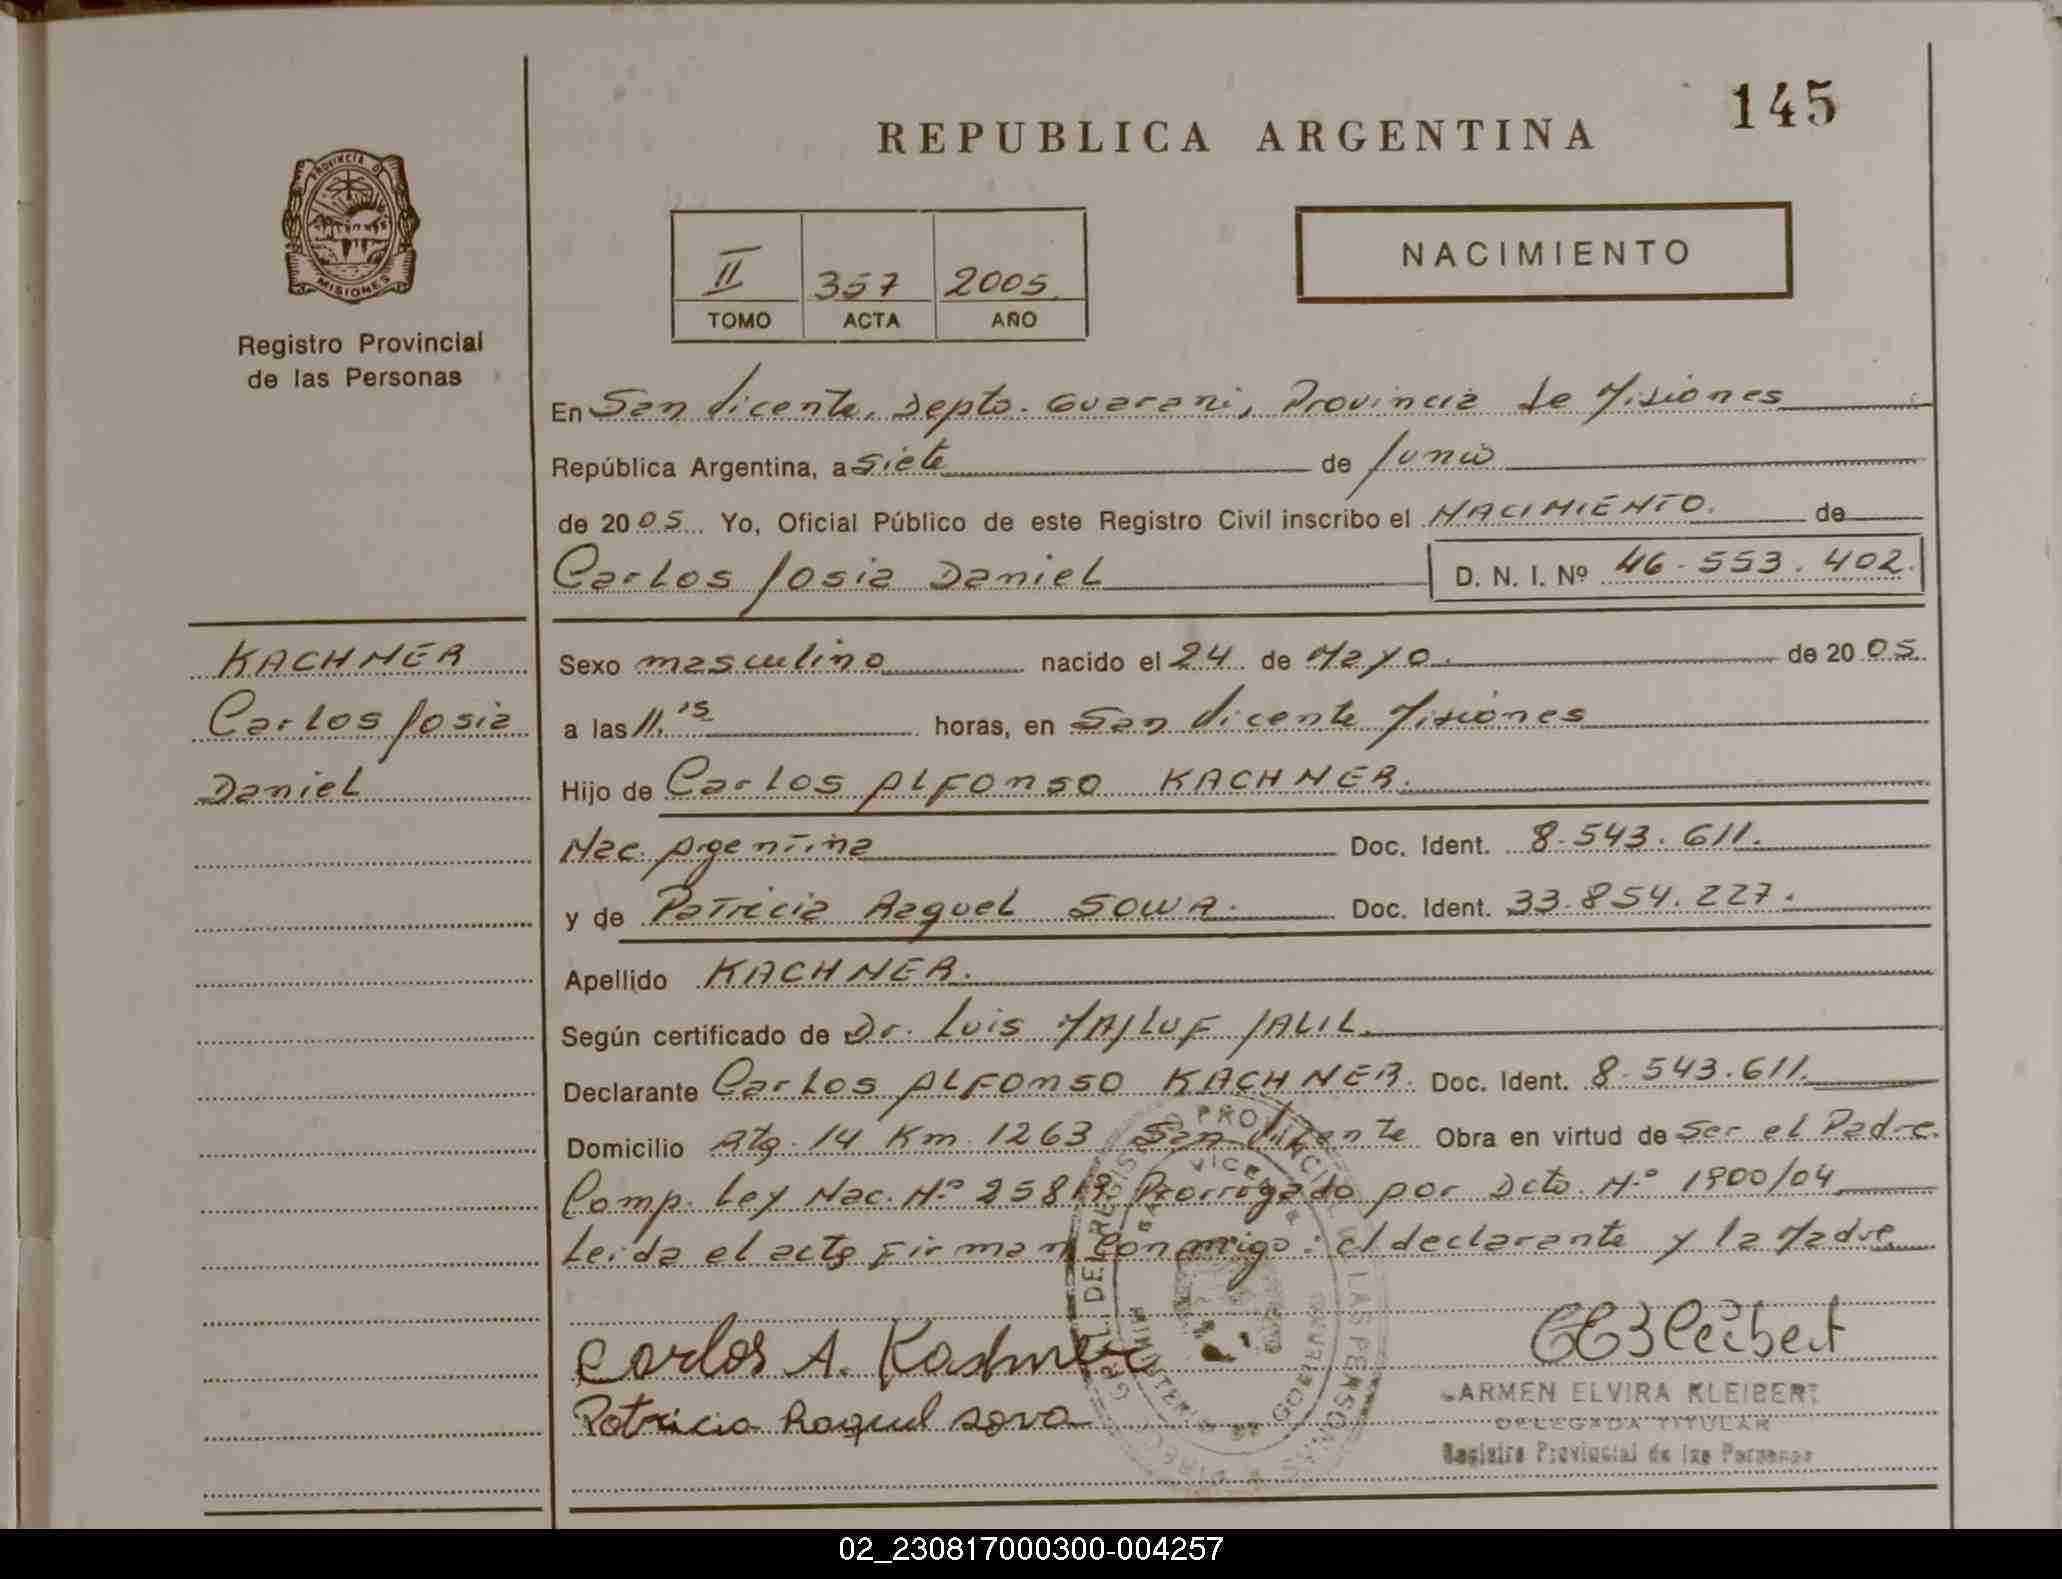 145
REPUBLICA ARGENTINA
PROVINCIA DE
MISIONES
Registro Provincial
de las Personas
NACIMIENTO
II 357 2005
TOMO ACTA AÑO
En San Vicente, Depto. Guarani, Provincia de Misiones
República Argentina, a siete de Junio
de 2005 Yo, Oficial Público de este Registro Civil inscribo el NACIMIENTO. de
Carlos Josia Daniel D. N. I. Nº 46.553.402.
KACHNER
Carlos Josia
Daniel
Sexo masculino nacido el 24 de Mayo. de 2005.
a las 11,15 horas, en San Vicente Misiones
Hijo de Carlos Alfonso KACHNER.
Nac. Argentina Doc. Ident. 8.543.611.
y de Patricia Raquel SOWA. Doc. Ident. 33.854.227.
Apellido KACHNER.
Según certificado de Dr. Luis MAJLUF JALIL
Declarante Carlos Alfonso KACHNER. Doc. Ident. 8.543.611.
Domicilio Rta. 14 Km. 1263 San Vicente Obra en virtud de ser el Padre.
Comp. Ley Nac. Nº 25819 Prorrogado por Dcto. Nº 1900/04
Leida el acta firman conmigo: el declarante y la Madre
Carlos A. Kachner
Patricia Raquel Sova
CARMEN ELVIRA KLEIBERT
DELEGADA TITULAR
Registro Provincial de las Personas
02_230817000300-004257